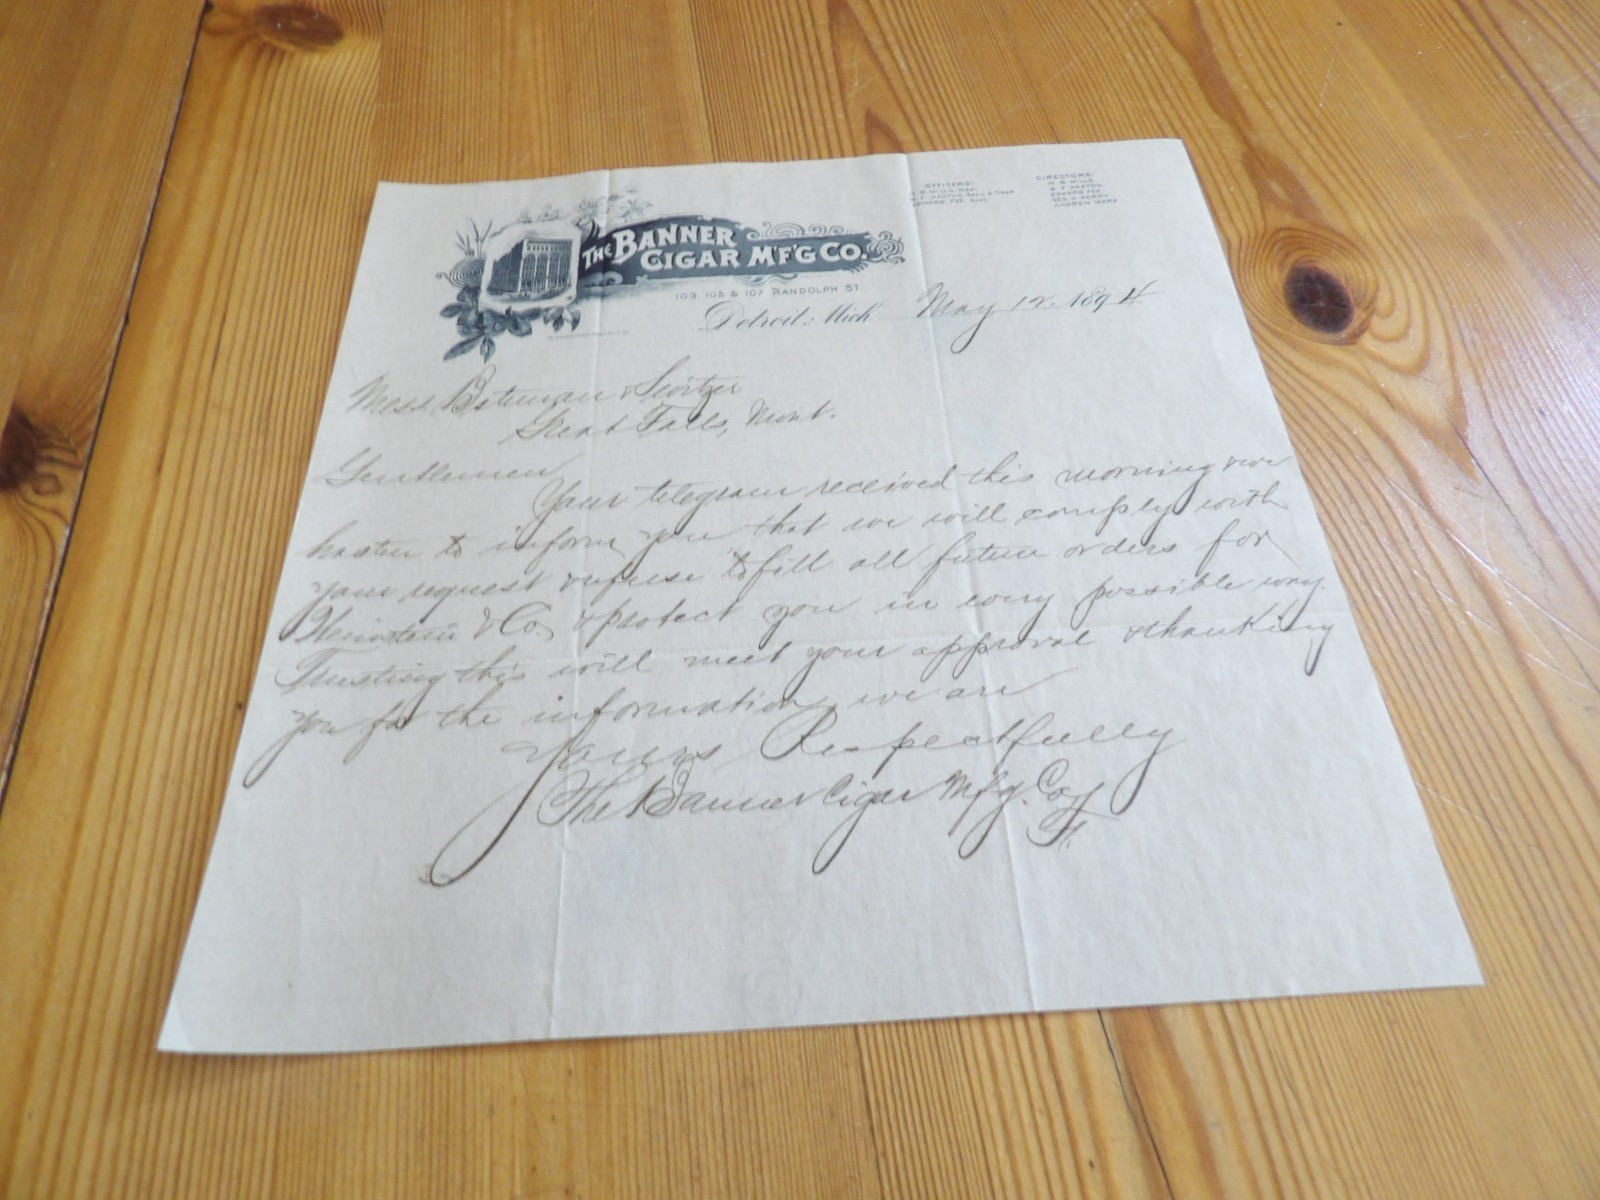 OFFICERS:
H. B. MILLS, Prest.
B. F. HAXTON, Secy. & Treas.
EDWARD FEE, Supt.
DIRECTORS:
H. B. MILLS
B. F. HAXTON
EDWARD FEE
GEO. H.
ANDREW MARX
THE BANNER
CIGAR M'F'G CO.
103, 105 & 107 RANDOLPH ST.
Detroit, Mich May 12. 1894
Mess Bateman & Switzer
Great Falls, Mont.
Gentlemen
Your telegram received this morning & we
hasten to inform you that we will comply with
your request & refuse to fill all future orders for
& Co. & protect you in every possible way.
Trusting this will meet your approval & thanking
you for the information, we are
Yours Respectfully
The Banner Cigar Mfg. Co